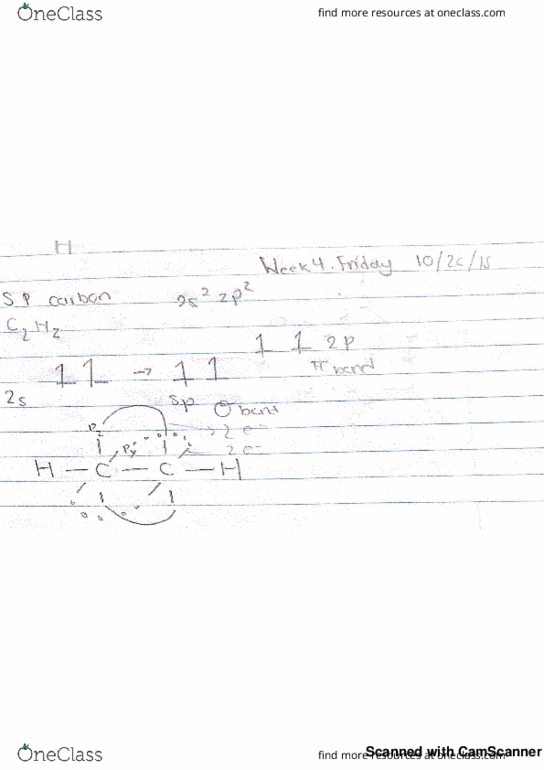 OneClass
find more resources at oneclass.com
H
Week 4. Friday 10/26/15
SP carbon 2s² 2p²
C₂H₂
1 1 2p
1 1 → 1 1 π bond
2s sp σ bond
Pz → 2 e⁻
Py 2 e⁻
H — C — C — H
OneClass
find more resources at oneclass.com
Scanned with CamScanner